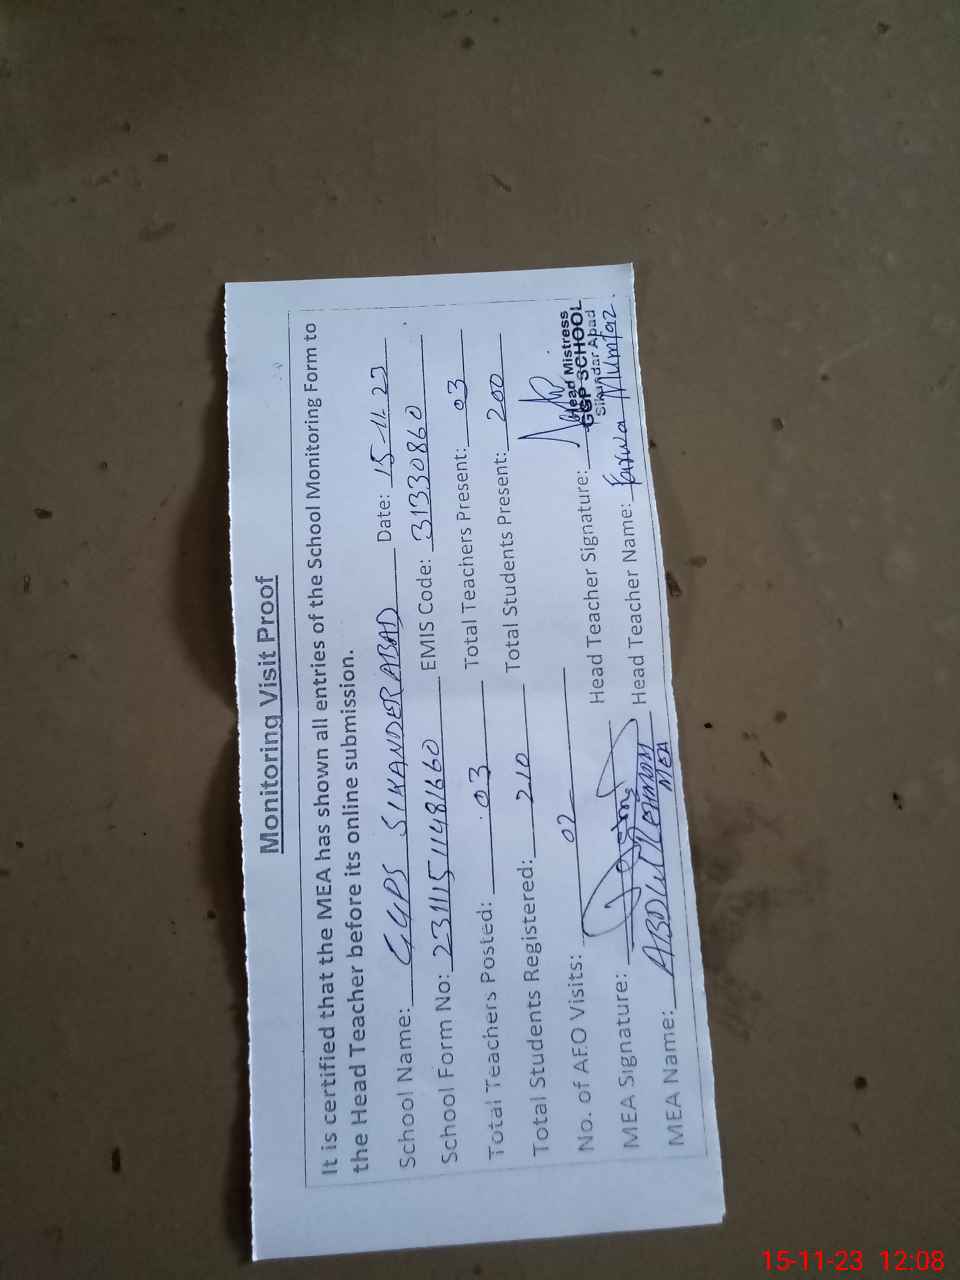 Monitoring Visit Proof
It is certified that the MEA has shown all entries of the School Monitoring Form to
the Head Teacher before its online submission.
School Name: GGPS SIKANDER ABAD Date: 15-11-23
School Form No: 23111511481660 EMIS Code: 31330860
Total Teachers Posted: 03 Total Teachers Present: 03
Total Students Registered: 210 Total Students Present: 200
No. of AEO Visits: 02
MEA Signature: Head Teacher Signature:
Head Mistress
GGP SCHOOL
Sikandar Abad
MEA Name: ABDUL REHMAN Head Teacher Name: Farwa Mumtaz.
MEA
15-11-23 12:08